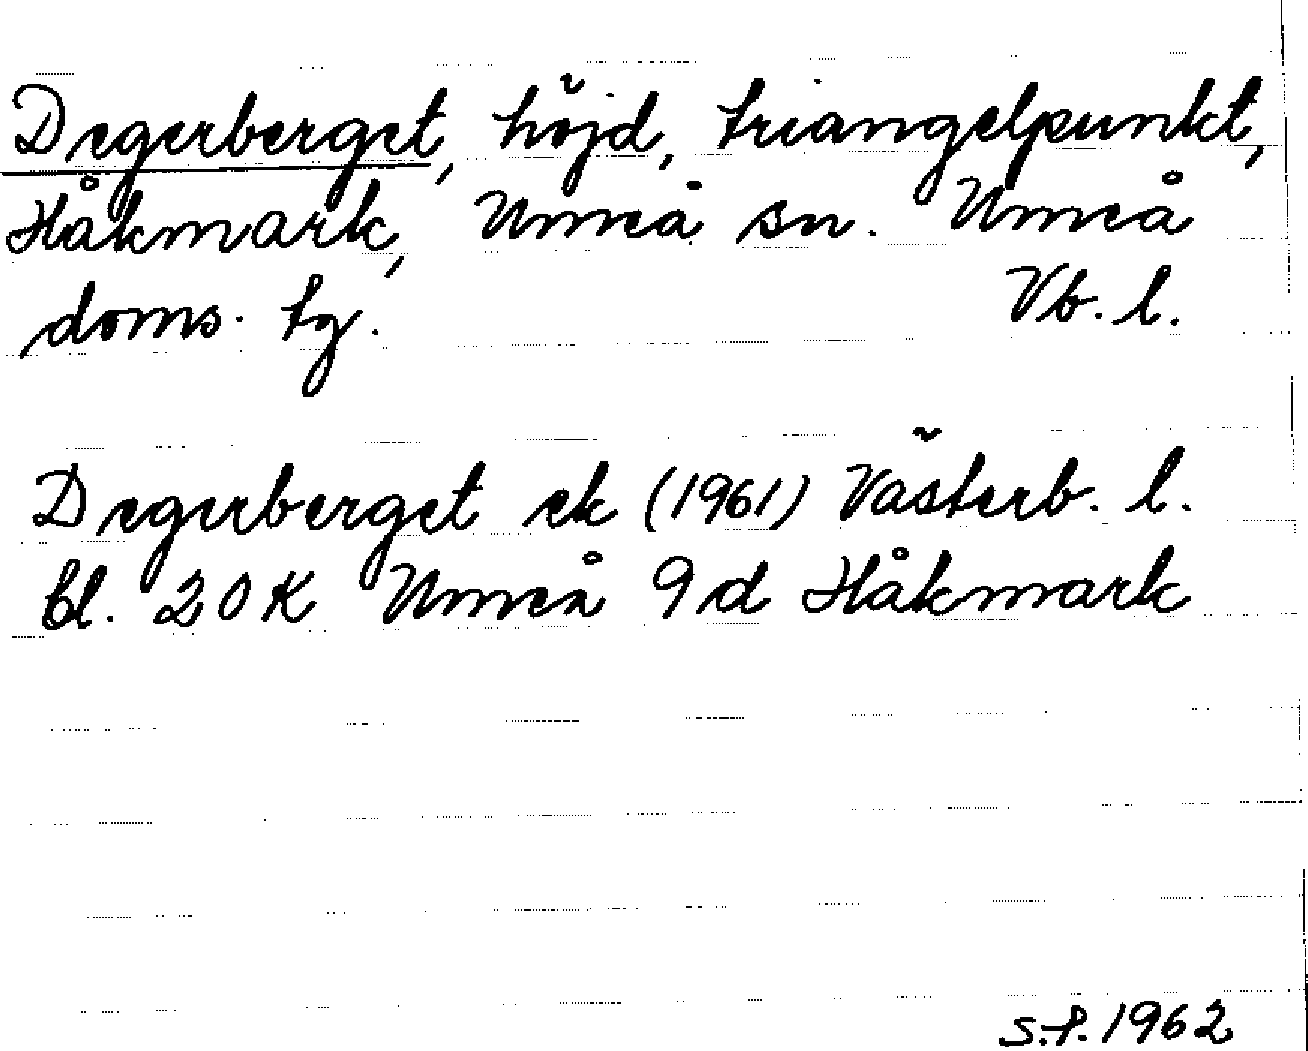 Degerberget, höjd, triangelpunkt,
Håkmark, Umeå sn. Umeå
doms. tg. Vb. l.
Degerberget ek (1961) Västerb. l.
bl. 20 K Umeå 9 d Håkmark
S.P. 1962